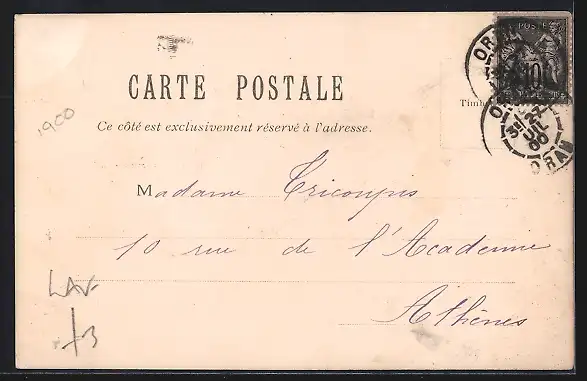 POSTE
10
ORAN
ORAN
CARTE POSTALE
Timb
1900
Ce côté est exclusivement réservé à l'adresse.
Madame Tricoupis
10 rue de l'Académie
Athènes
LAV